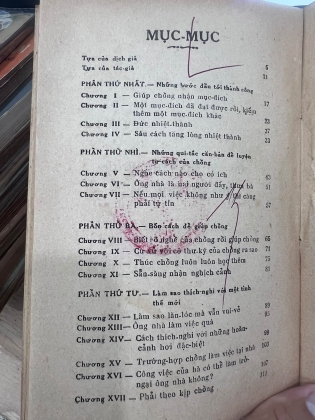 MỤC-MỤC
Tựa của dịch giả 5
Tựa của tác-giả 11
PHẦN THỨ NHẤT.— Những bước đầu tới thành công
Chương I — Giúp chồng nhận mục-đích 17
Chương II — Một mục-đích đã đạt được rồi, kiếm
thêm một mục-đích khác
Chương III — Đức nhiệt-thành
Chương IV — Sáu cách tăng lòng nhiệt thành
PHẦN THỨ NHÌ.— Những qui-tắc căn-bản để luyện
tư-cách của chồng
Chương V — Nghe cách nào cho có ích
Chương VI — Ông nhà là hai người đấy, thưa bà 51
Chương VII — Nếu mọi việc không như ý thì cũng
phải tự tin
PHẦN THỨ BA.— Bốn cách để giúp chồng
Chương VIII — Biết rõ nghề của chồng rồi giúp chồng
Chương IX — Cư xử với cô thư-ký của chồng ra sao
Chương X — Thúc chồng luôn luôn học thêm
Chương XI — Sẵn-sàng nhận nghịch cảnh
PHẦN THỨ TƯ.— Làm sao thích-nghi với một tình
thế mới
Chương XII — Làm sao lăn-lóc mà vẫn vui-vẻ
Chương XIII — Ông nhà làm việc quá
Chương XIV — Cách thích-nghi với những hoàn-
cảnh hơi đặc-biệt
Chương XV — Trường-hợp chồng làm việc tại nhà
Chương XVI — Công việc của bà có thể làm trở-
ngại ông nhà không?
Chương XVII — Phải theo kịp chồng